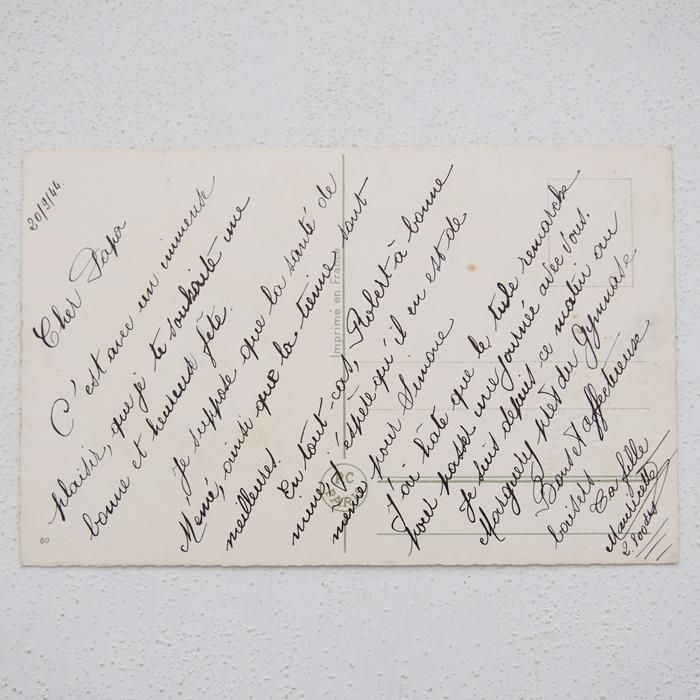 20/9/44.
Cher Papa
C'est avec un immense
plaisir, que je te souhaite une
bonne et heureuse fête.
Je suppose que la santé de
Mémé, ainsi que la tienne sont
meilleures
En tout-cas, Robert à bonne
mine, j'espère qu'il en est de
même pour Simone
J'ai hâte que le tube remarche
pour passer une journée avec vous.
Je suis depuis ce matin au
Marguery près du Gymnase
Bons et affectueux
baisers Ta fille
Mauricette
Imprimé en France
PC
PARIS
60